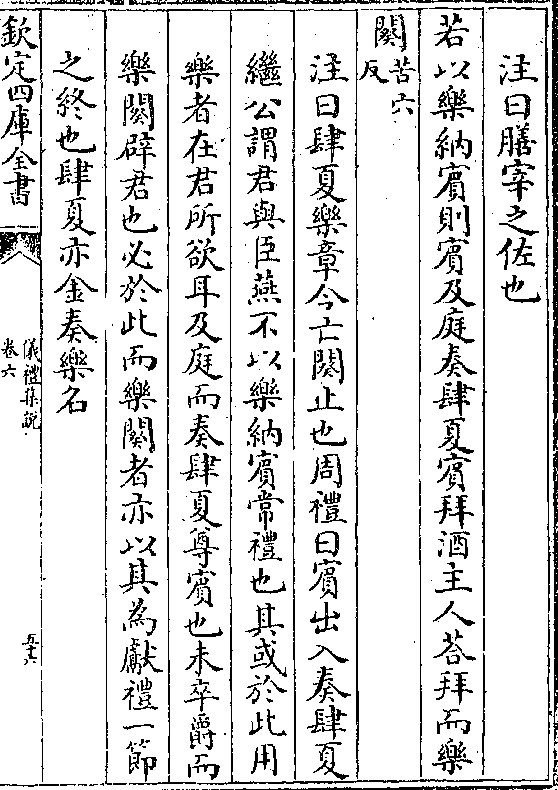 注曰膳宰之佐也
若以樂納賓則賓及庭奏肆夏賓拜酒主人荅拜而樂
闋苦穴反
注曰肆夏樂章今亡闋止也周禮曰賓出入奏肆夏
繼公謂君與臣燕不以樂納賓常禮也其或於此用
樂者在君所欲耳及庭而奏肆夏尊賓也未卒爵而
樂闋辟君也必於此而樂闋者亦以其為獻禮一節
之終也肆夏亦金奏樂名
欽定四庫全書
儀禮集說
卷六